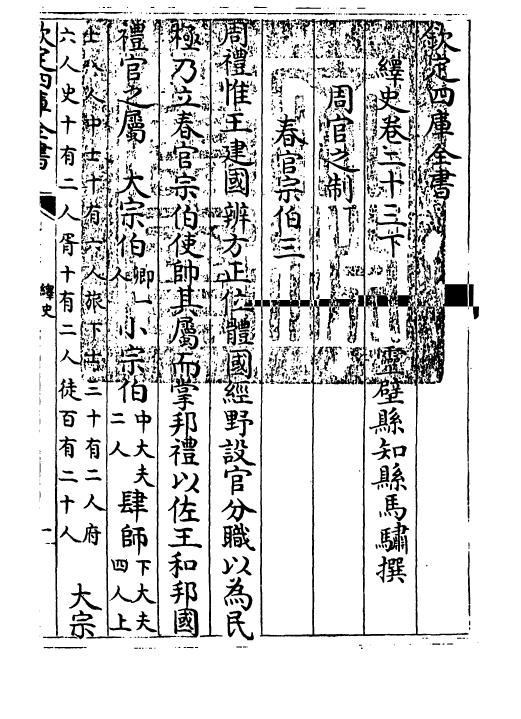 欽定四庫全書
繹史卷二十三下
靈璧縣知縣馬驌撰
周官之制
春官宗伯三
周禮惟王建國辨方正位體國經野設官分職以為民
極乃立春官宗伯使帥其屬而掌邦禮以佐王和邦國
禮官之屬 大宗伯卿一人小宗伯中大夫二人肆師下大夫四人上
士八人中士十有六人旅下士三十有二人府
六人史十有二人胥十有二人徒百有二十人 大宗
欽定四庫全書
繹史
一